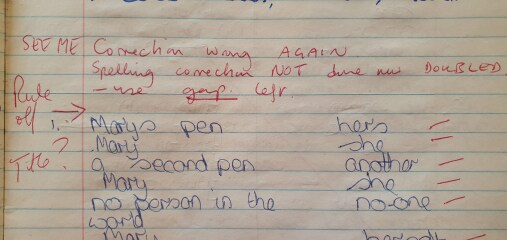 SEE ME Correction wrong AGAIN
Spelling correction NOT done now DOUBLED
Rule - use gap left
off 1. Marys pen hers
Mary she
Title? a second pen another
Mary she
no person in the no-one
world
Mary